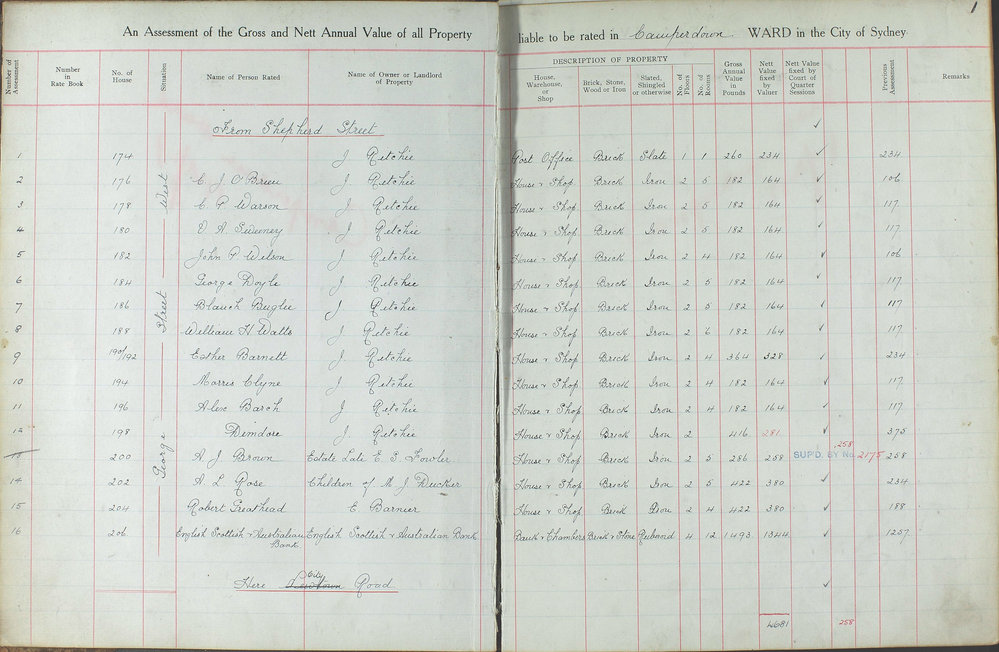 1
An Assessment of the Gross and Nett Annual Value of all Property liable to be rated in Camperdown. WARD in the City of Sydney
DESCRIPTION OF PROPERTY
Number of Assessment | Number in Rate Book | No. of House | Situation | Name of Person Rated | Name of Owner or Landlord of Property | House, Warehouse, or Shop | Brick, Stone, Wood or Iron | Slated, Shingled or otherwise | No. of Floors | No. of Rooms | Gross Annual Value in Pounds | Nett Value fixed by Valuer | Nett Value fixed by Court of Quarter Sessions | Previous Assessment | Remarks
George Street West
From Shepherd Street ✓
1 174 J Ritchie Post Office Brick Slate 1 1 260 234 ✓ 234
2 176 C. J. O'Brien J. Ritchie House & Shop Brick Iron 2 5 182 164 ✓ 106
3 178 C P Warson J. Ritchie House & Shop Brick Iron 2 5 182 164 ✓ 117
4 180 A. Sweeney J Ritchie House & Shop Brick Iron 2 5 182 164 ✓ 117
5 182 John P Wilson J. Ritchie House & Shop Brick Iron 2 4 182 164 ✓ 106
6 184 George Doyle J Ritchie House & Shop Brick Iron 2 5 182 164 ✓ 117
7 186 Blanch Buglee J Ritchie House & Shop Brick Iron 2 5 182 164 ✓ 117
8 188 William H Watts J Ritchie House & Shop Brick Iron 2 6 182 164 ✓ 117
9 190/192 Esther Barnett J. Ritchie House & Shop Brick Iron 2 4 364 328 ✓ 234
10 194 Morris Clyne J Ritchie House & Shop Brick Iron 2 4 182 164 ✓ 117
11 196 Alex Barch J Ritchie House & Shop Brick Iron 2 4 182 164 ✓ 117
12 198 Dimdore J. Ritchie House & Shop Brick Iron 2 416 281 ✓ 375
13 200 A J Brown Estate Late E. S. Fowler House & Shop Brick Iron 2 5 286 258 SUP'D. BY No. 2175 258 258
14 202 A. L. Rose Children of M. J Ducker House & Shop Brick Iron 2 5 422 380 ✓ 234
15 204 Robert Greathead E Barnier House & Shop Brick Iron 2 4 422 380 ✓ 188
16 206 English Scottish & Australian Bank English Scottish & Australian Bank Bank & Chambers Brick & Stone Ruband 4 12 1493 1344 ✓ 1257
Here Newtown City Road ✓
4681 258